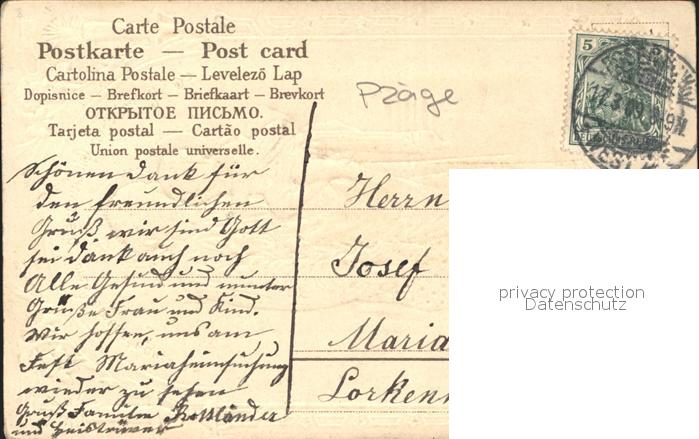 Carte Postale
Postkarte — Post card
Cartolina Postale — Levelező Lap
Dopisnice — Brefkort — Briefkaart — Brevkort
ОТКРЫТОЕ ПИСЬМО.
Tarjeta postal — Cartão postal
Union postale universelle.
Präge
5
Schönen Dank für
den freundlichen
Gruß wir sind Gott
sei dank auch noch
Alle Gesund und munter
Grüße Frau und Kind.
Wir hoffen, uns am
Fest Mariaheimsuchung
wieder zu sehen
Gruß Familie Rottländer
und
Herrn
Josef
Maria
Lorken
privacy protection
Datenschutz